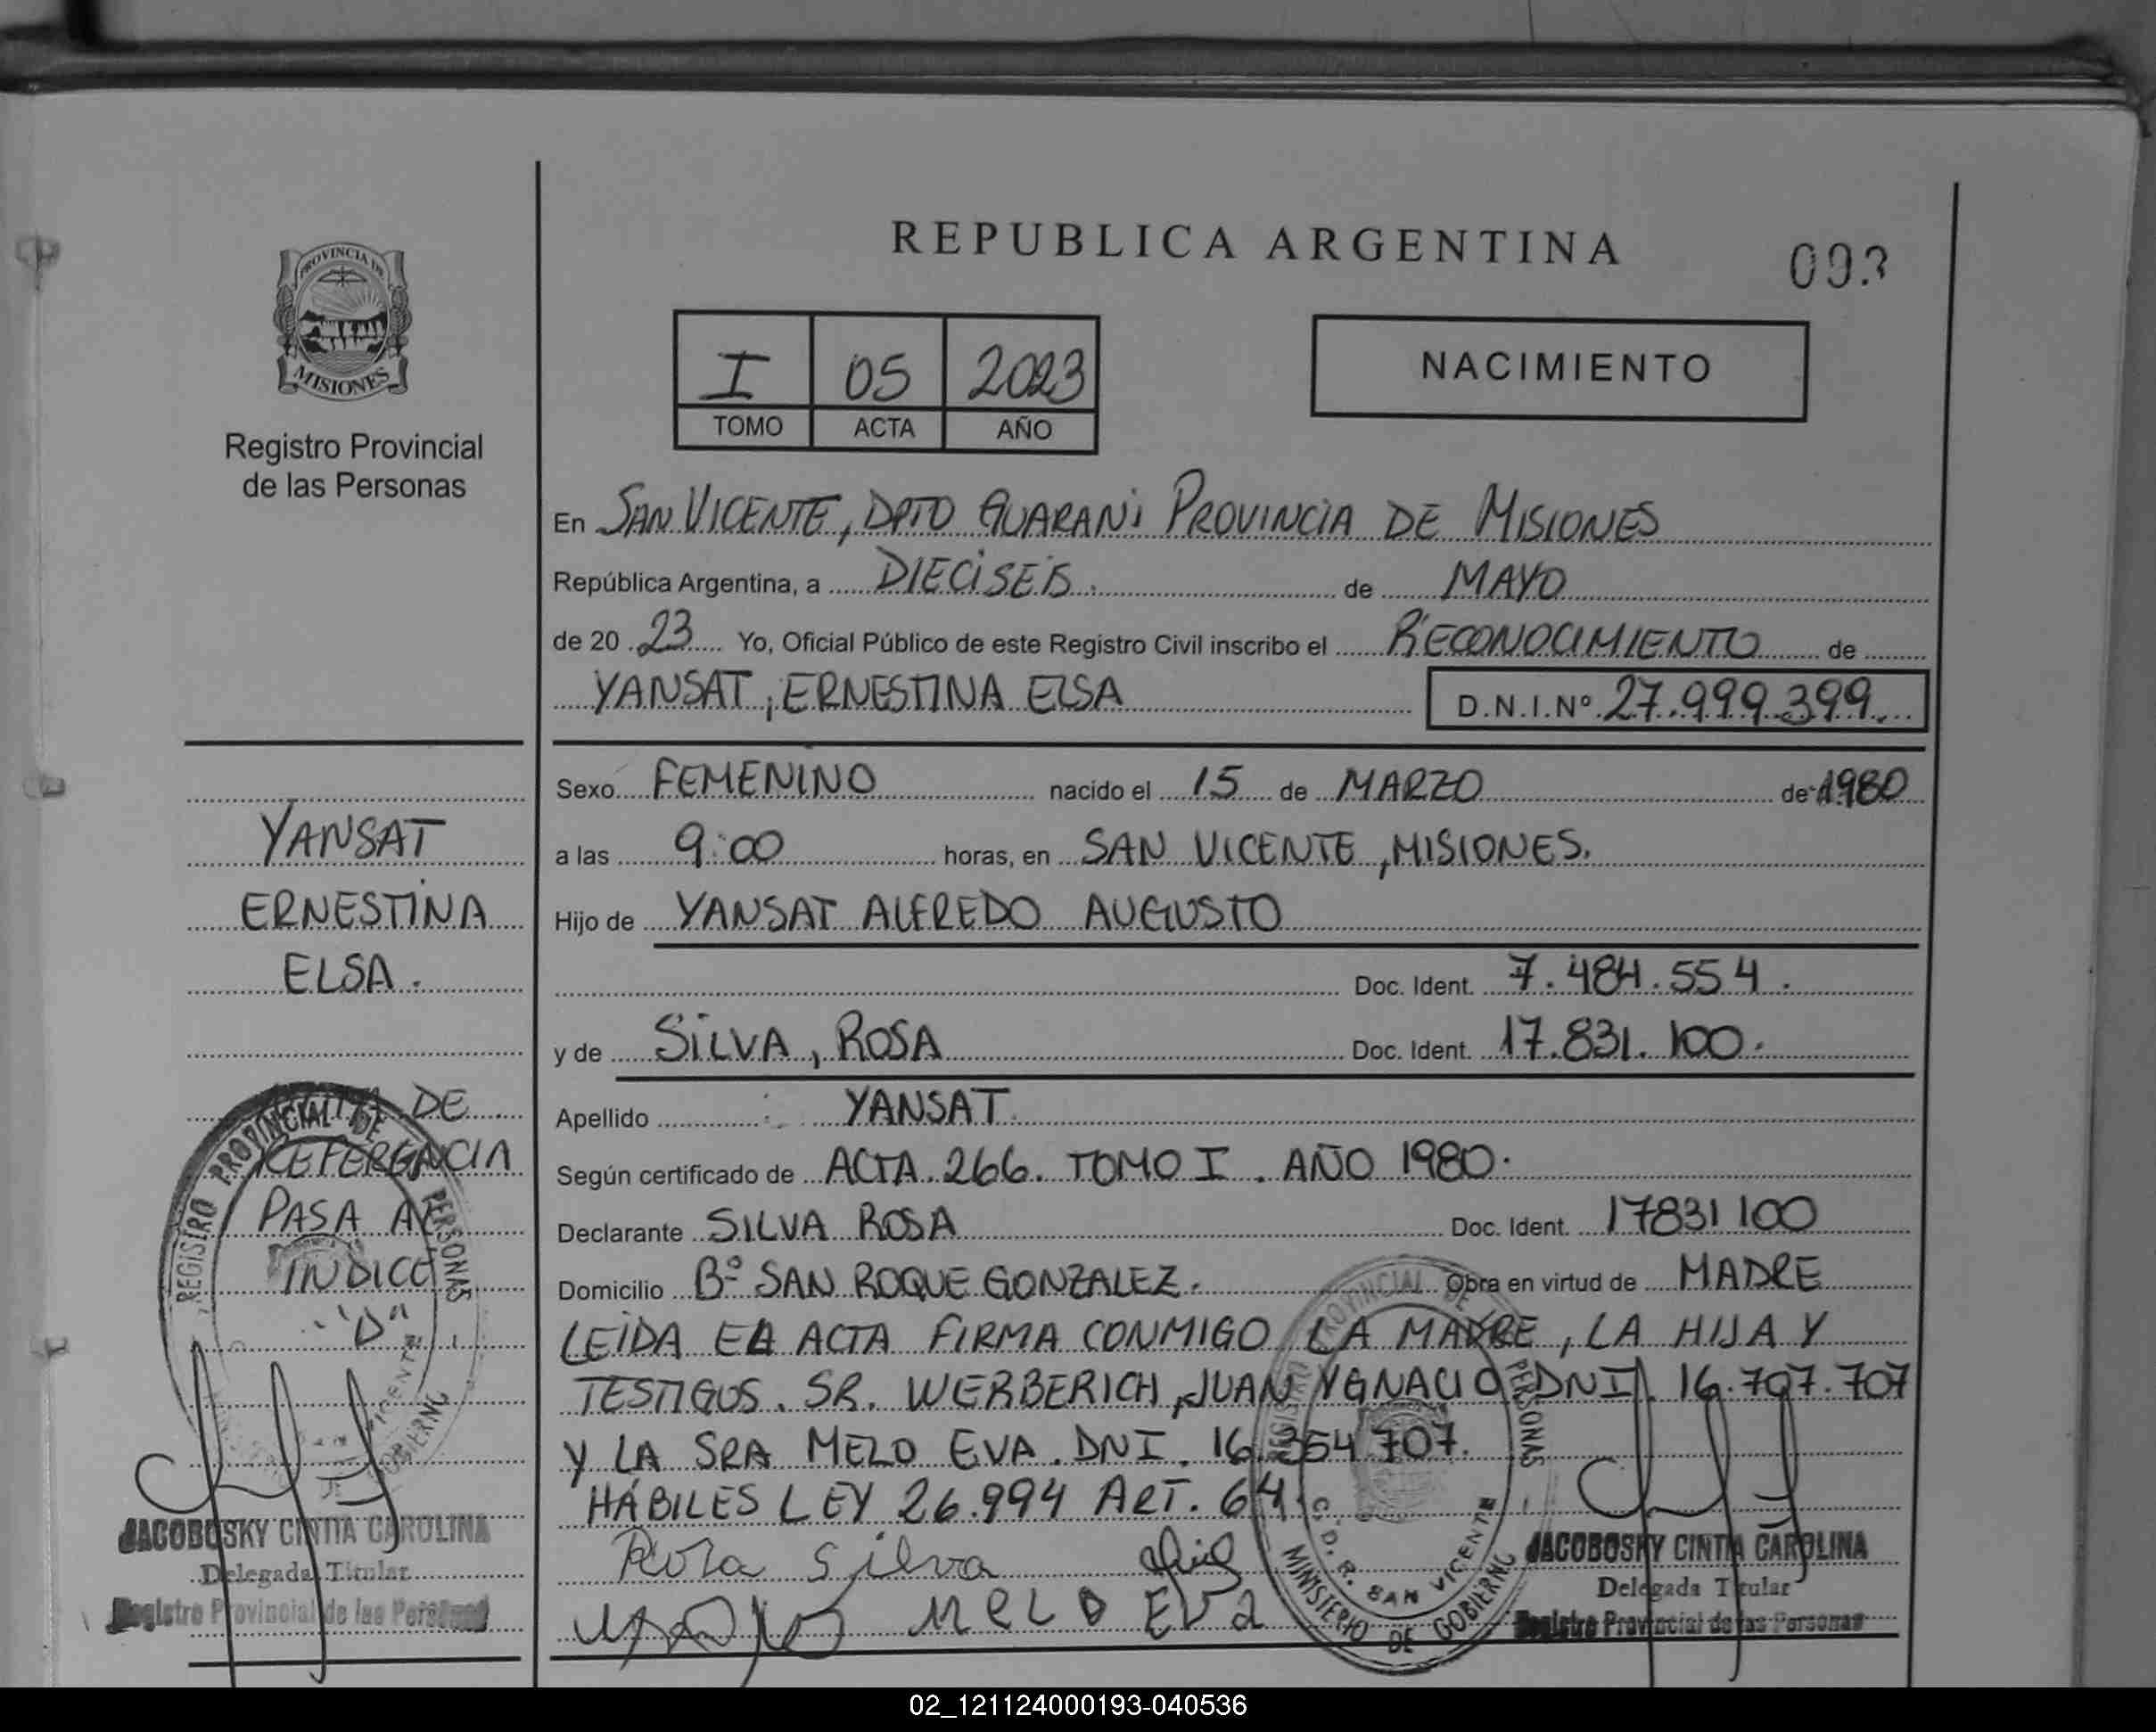 REPUBLICA ARGENTINA
PROVINCIA DE
MISIONES
Registro Provincial
de las Personas
I 05 2023
TOMO ACTA AÑO
NACIMIENTO
En SAN VICENTE, DPTO GUARANI PROVINCIA DE MISIONES
República Argentina, a DIECISEIS de MAYO
de 20 23 Yo, Oficial Público de este Registro Civil inscribo el RECONOCIMIENTO de
YANSAT, ERNESTINA ELSA D.N.I.Nº 27.999.399
Sexo FEMENINO nacido el 15 de MARZO de 1980
a las 9:00 horas, en SAN VICENTE, MISIONES.
Hijo de YANSAT ALFREDO AUGUSTO
Doc. Ident. 7.484.554.
y de SILVA, ROSA Doc. Ident. 17.831.100.
Apellido YANSAT
Según certificado de ACTA 266. TOMO I. AÑO 1980.
Declarante SILVA ROSA Doc. Ident. 17831100
Domicilio Bº SAN ROQUE GONZALEZ. Obra en virtud de MADRE
LEIDA EL ACTA FIRMA CONMIGO LA MADRE, LA HIJA Y
TESTIGOS. SR. WERBERICH, JUAN YGNACIO DNI. 16.707.707
Y LA SRA MELO EVA. DNI. 16.354707.
HÁBILES LEY 26.994 ART. 64.
Rosa Silva
MELO EVA
YANSAT
ERNESTINA
ELSA.
DE
REFERENCIA
PASA AL
INDICE
"D"
REGISTRO PROVINCIAL DE PERSONAS
JACOBOSKY CINTIA CAROLINA
Delegada Titular
Registro Provincial de las Personas
REGISTRO PROVINCIAL DE PERSONAS
C.D.R. SAN VICENTE
MINISTERIO DE GOBIERNO
JACOBOSKY CINTIA CAROLINA
Delegada Titular
Registro Provincial de las Personas
02_121124000193-040536